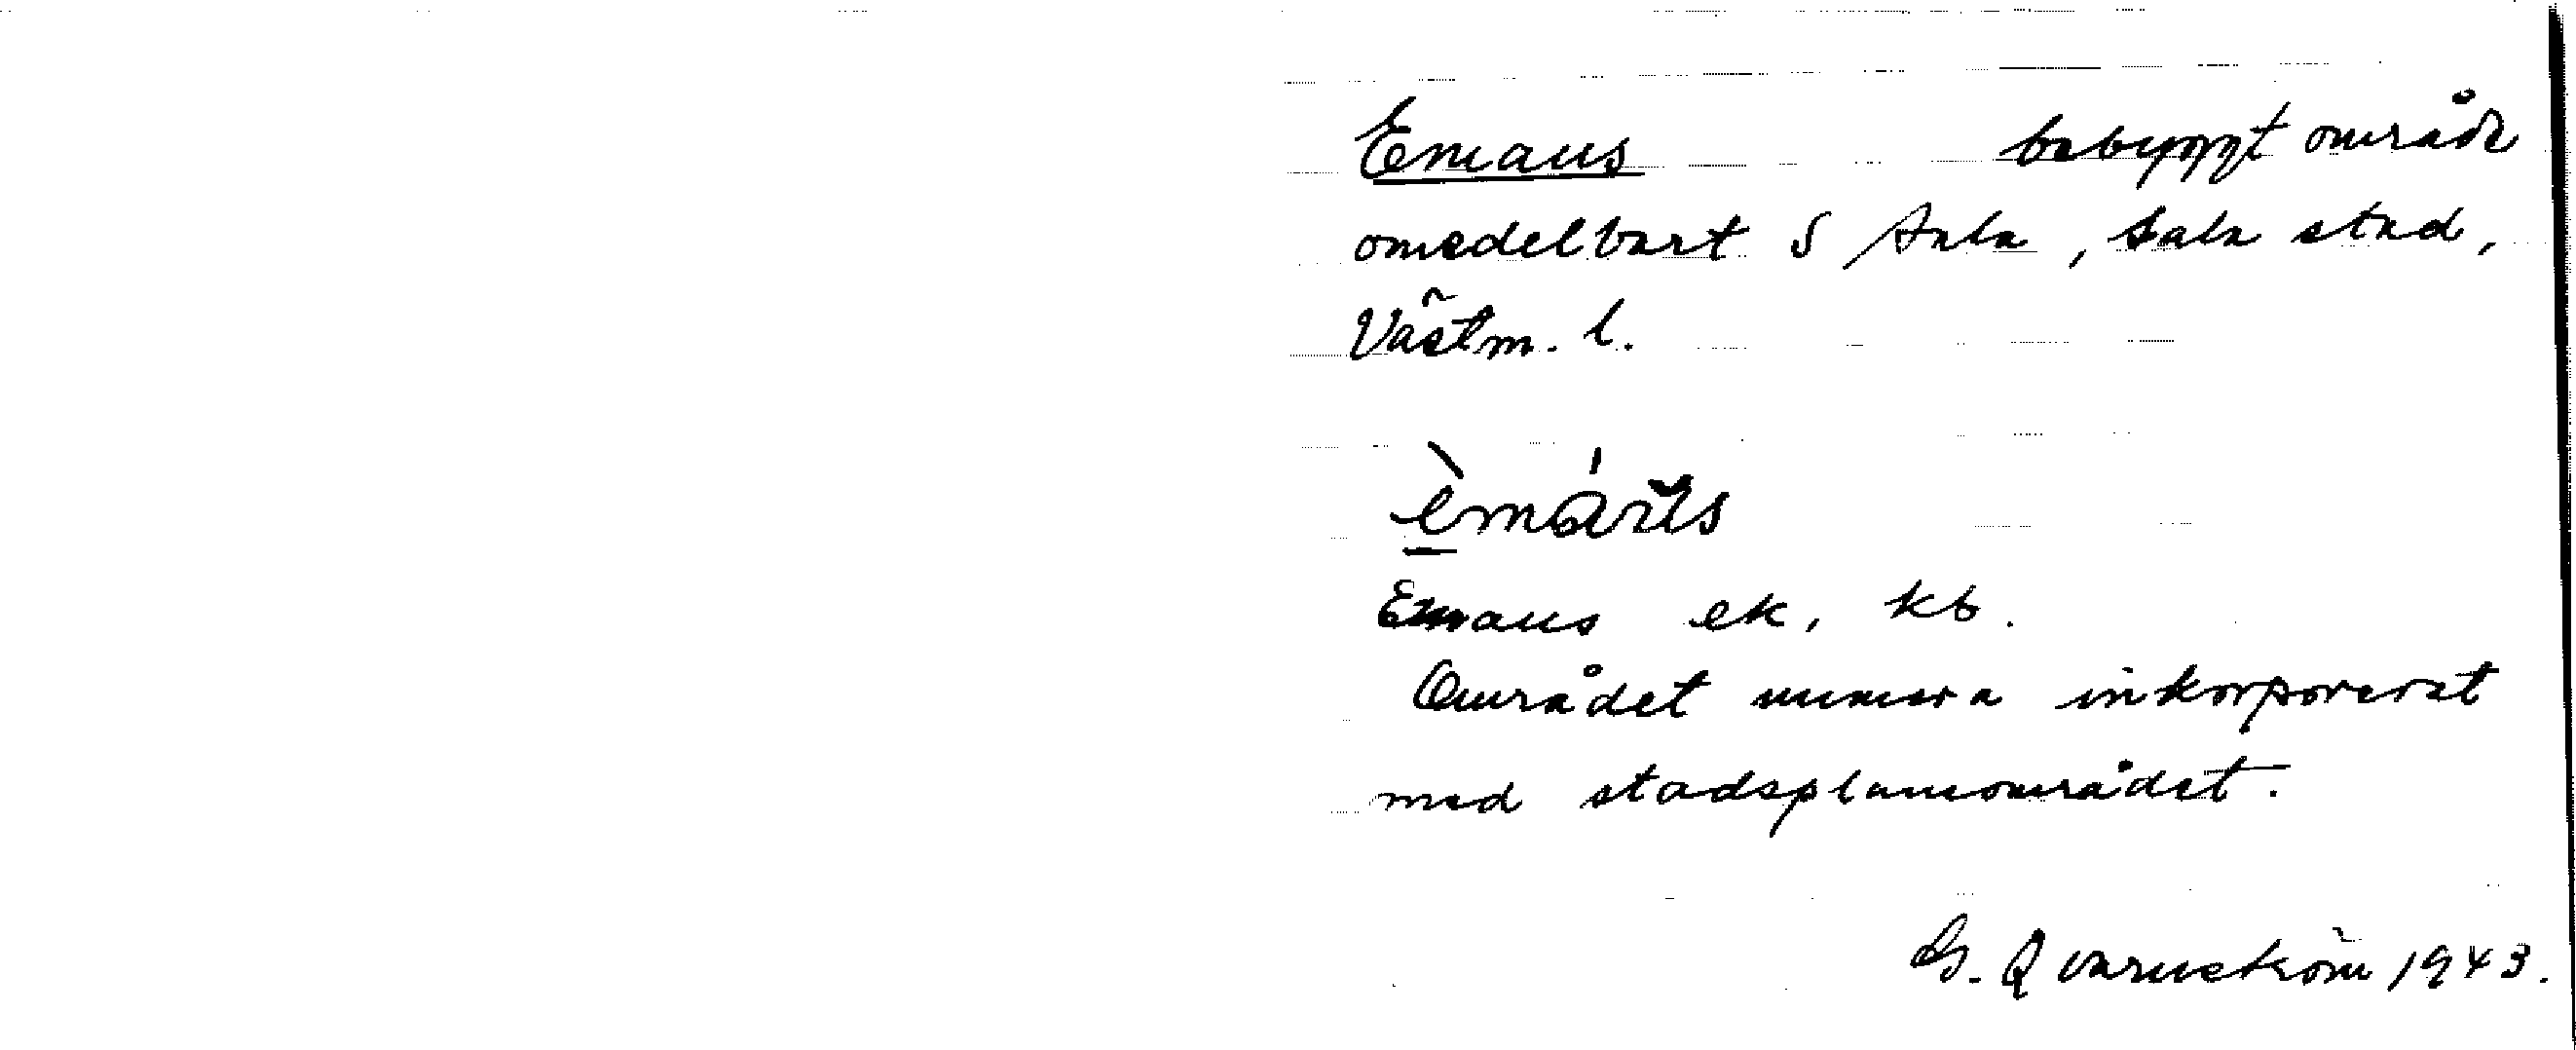 Emaus bebyggt område
omedelbart S Sala, Sala stad,
Västm. l.
èmáŭs
Emaus ek, kb.
Området numera inkorporerat
med stadsplaneområdet.
G. Qvarnström 1943.